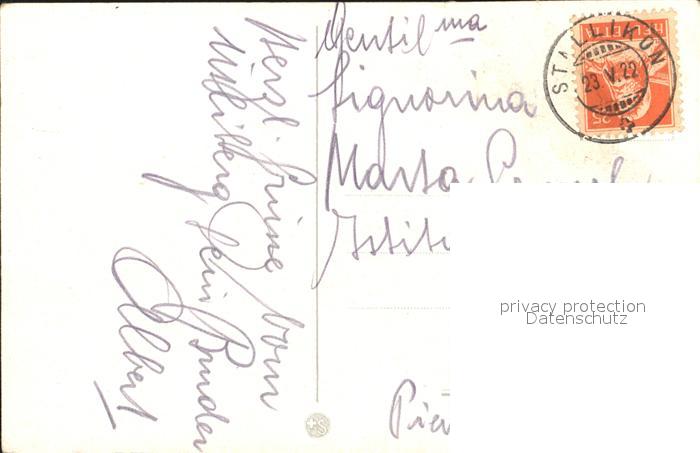 Herzl. Grüsse vom
Uetliberg Dein Bruder
Albert
Gentil ma
Signorina
Marta
Istitu
HELVETIA
25
STALLIKON
23.V.22
privacy protection
Datenschutz